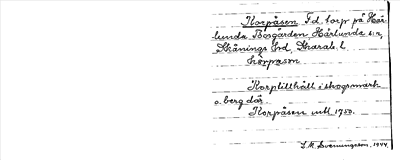 Korpåsen F.d. torp på Här-
lunda Bosgården, Härlunda sn,
Skånings hd, Skarab. l.
kòrpasen
Korptillhåll i skogsmark
o. berg där.
Korpåsen mtl 1750.
S.M. Svenningson, 1944